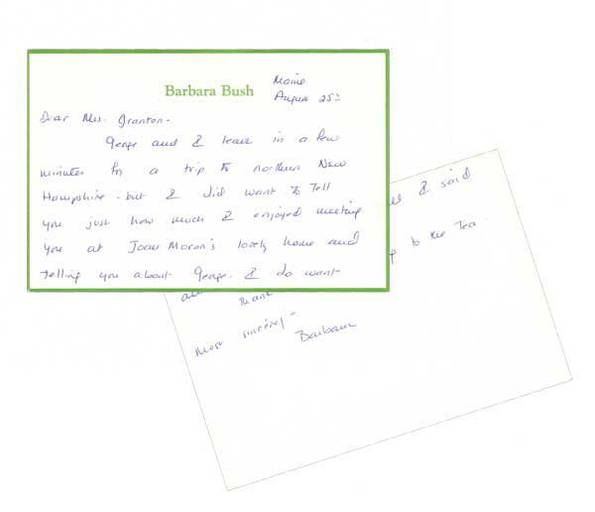 Barbara Bush
Maine
August 25th
Dear Mrs. Granton -
George and I leave in a few
minutes for a trip to northern New
Hampshire - but I did want to tell
you just how much I enjoyed meeting
you at Joan Moran's lovely home and
telling you about George. I do want
I said
to the Tea
thank
Most sincerely -
Barbara